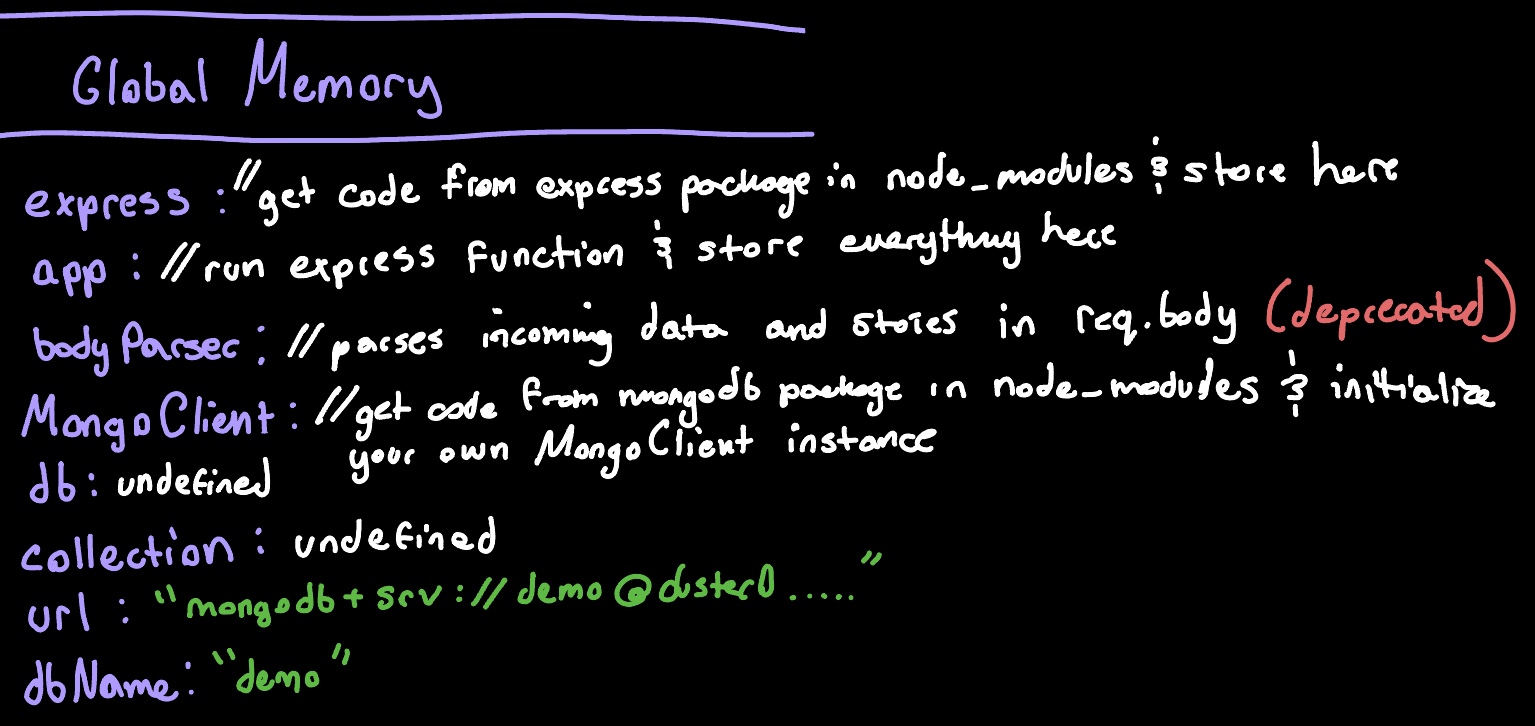 Global Memory
express : //get code from express package in node_modules & store here
app : //run express function & store everything here
bodyParser : //parses incoming data and stores in req.body (deprecated)
MongoClient : //get code from mongodb package in node_modules & initialize
your own MongoClient instance
db : undefined
collection : undefined
url : "mongodb+srv://demo@cluster0....."
dbName : "demo"